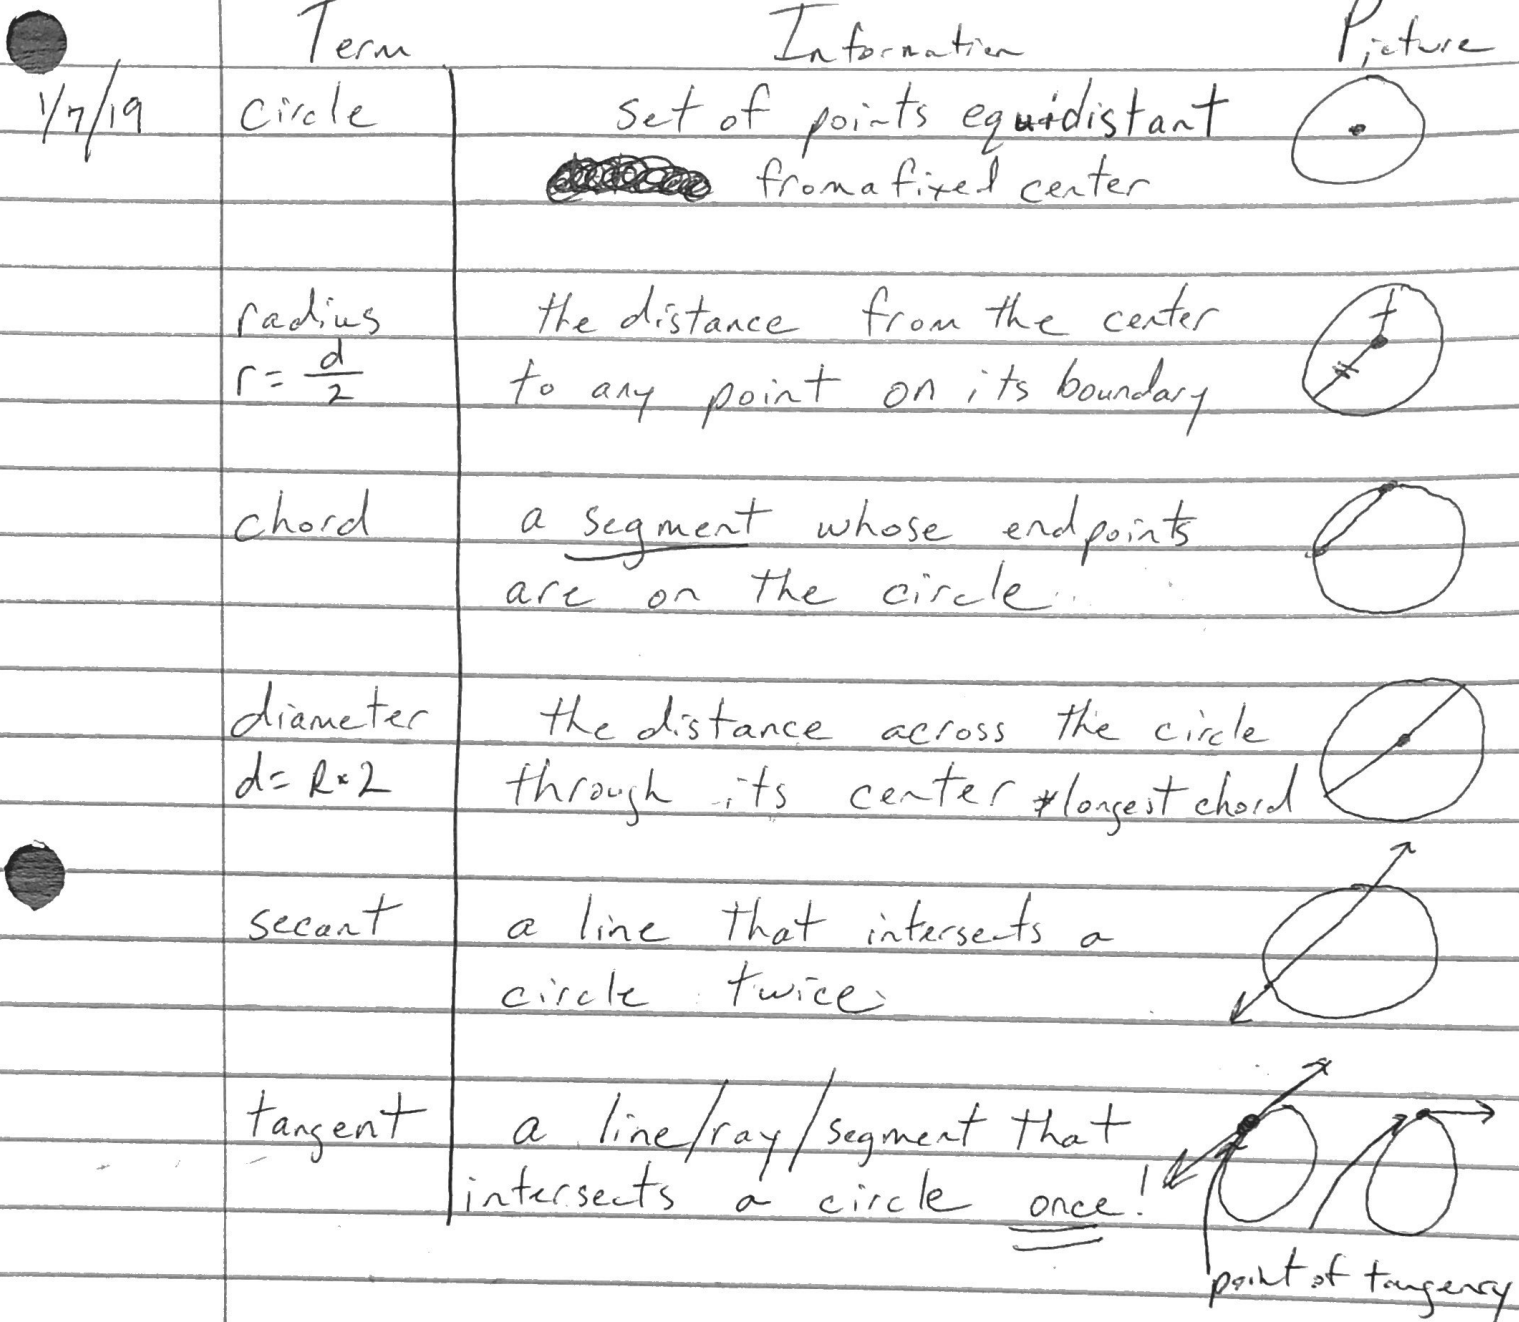 Term Information Picture
1/7/19 circle set of points equidistant
from a fixed center
radius the distance from the center
r = d/2 to any point on its boundary
chord a segment whose endpoints
are on the circle
diameter the distance across the circle
d = R * 2 through its center *longest chord
secant a line that intersects a
circle twice
tangent a line/ray/segment that
intersects a circle once!
point of tangency